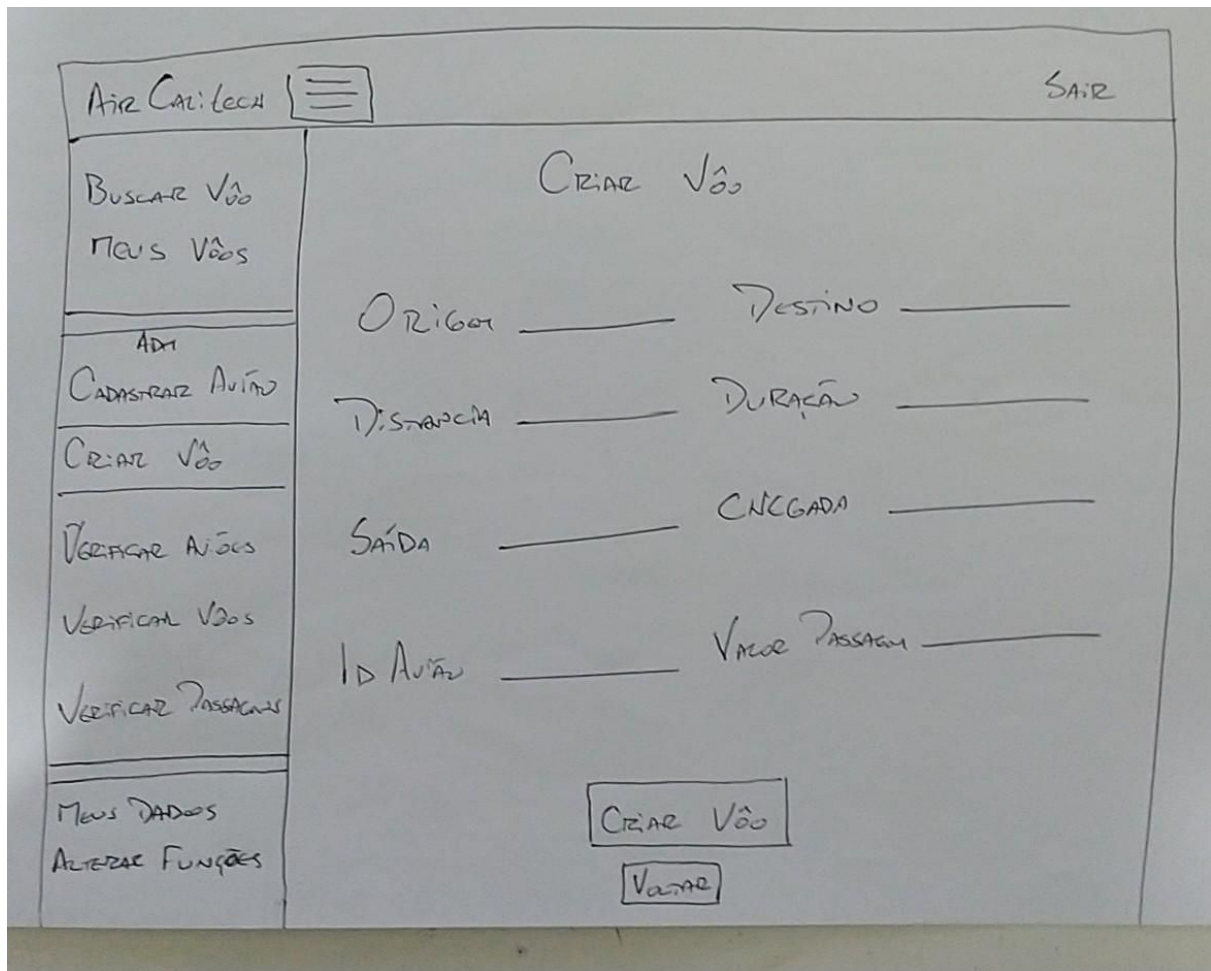 Air Calitech
Sair
Buscar Vôo
Meus Vôos
Adm
Cadastrar Avião
Criar Vôo
Verificar Aviões
Verificar Vôos
Verificar Passagens
Meus Dados
Alterar Funções
Criar Vôo
Origem
Destino
Distancia
Duração
Saída
Chegada
ID Avião
Valor Passagem
Criar Vôo
Voltar